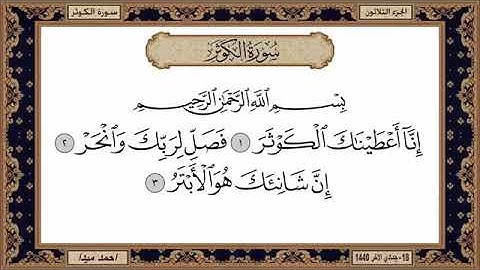 سورة الكوثر
الجزء الثلاثون
سُورَةُ الكَوْثَرِ
بِسْمِ اللَّهِ الرَّحْمَٰنِ الرَّحِيمِ
إِنَّآ أَعْطَيْنَاكَ الْكَوْثَرَ ١ فَصَلِّ لِرَبِّكَ وَانْحَرْ ٢
إِنَّ شَانِئَكَ هُوَ الْأَبْتَرُ ٣
18- جمادي الآخر 1440